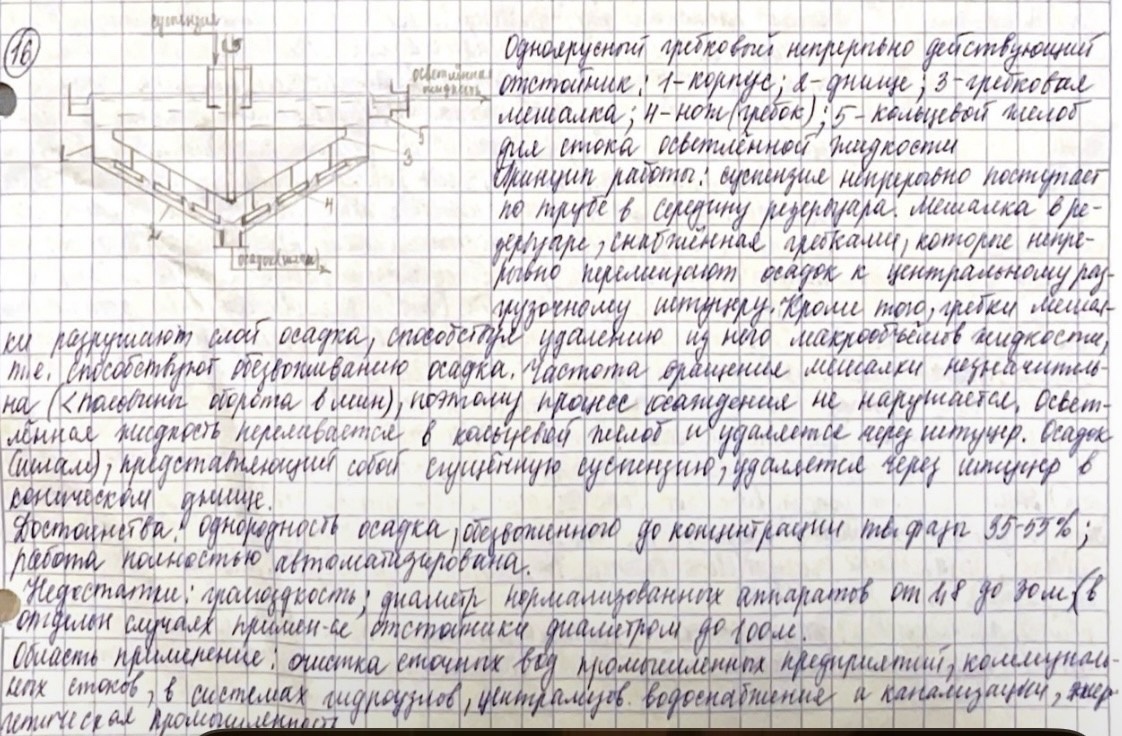 16
суспензия
осветлённая
жидкость
1
2
3
4
5
осадок (шлам)
Одноярусный гребковый непрерывно действующий
отстойник: 1-корпус; 2-днище; 3-гребковая
мешалка; 4-нож (гребок); 5-кольцевой желоб
для стока осветлённой жидкости
Принцип работы: суспензия непрерывно поступает
по трубе в середину резервуара. Мешалка в ре-
зервуаре, снабжённая гребками, которые непре-
рывно перемещают осадок к центральному раз-
грузочному штуцеру. Кроме того, гребки мешал-
ки разрушают слой осадка, способствуя удалению из него макрообъёмов жидкости,
т.е. способствуют обезвоживанию осадка. Частота вращения мешалки незначитель-
на (<половины оборота в мин), поэтому процесс осаждения не нарушается. Освет-
лённая жидкость переливается в кольцевой желоб и удаляется через штуцер. Осадок
(шлам), представляющий собой сгущённую суспензию, удаляется через штуцер в
коническом днище.
Достоинства: однородность осадка, обезвоженного до концентрации тв. фазы 35-55%;
работа полностью автоматизирована.
Недостатки: громоздкость; диаметр нормализованных аппаратов от 1,8 до 30м, (в
отдельн случаях примен-ся отстойники диаметром до 100м.
Область применение: очистка сточных вод промышленных предприятий, коммуналь-
ных стоков, в системах гидроузлов, централизов. водоснабжение и канализации, энер-
гетическая промышленность